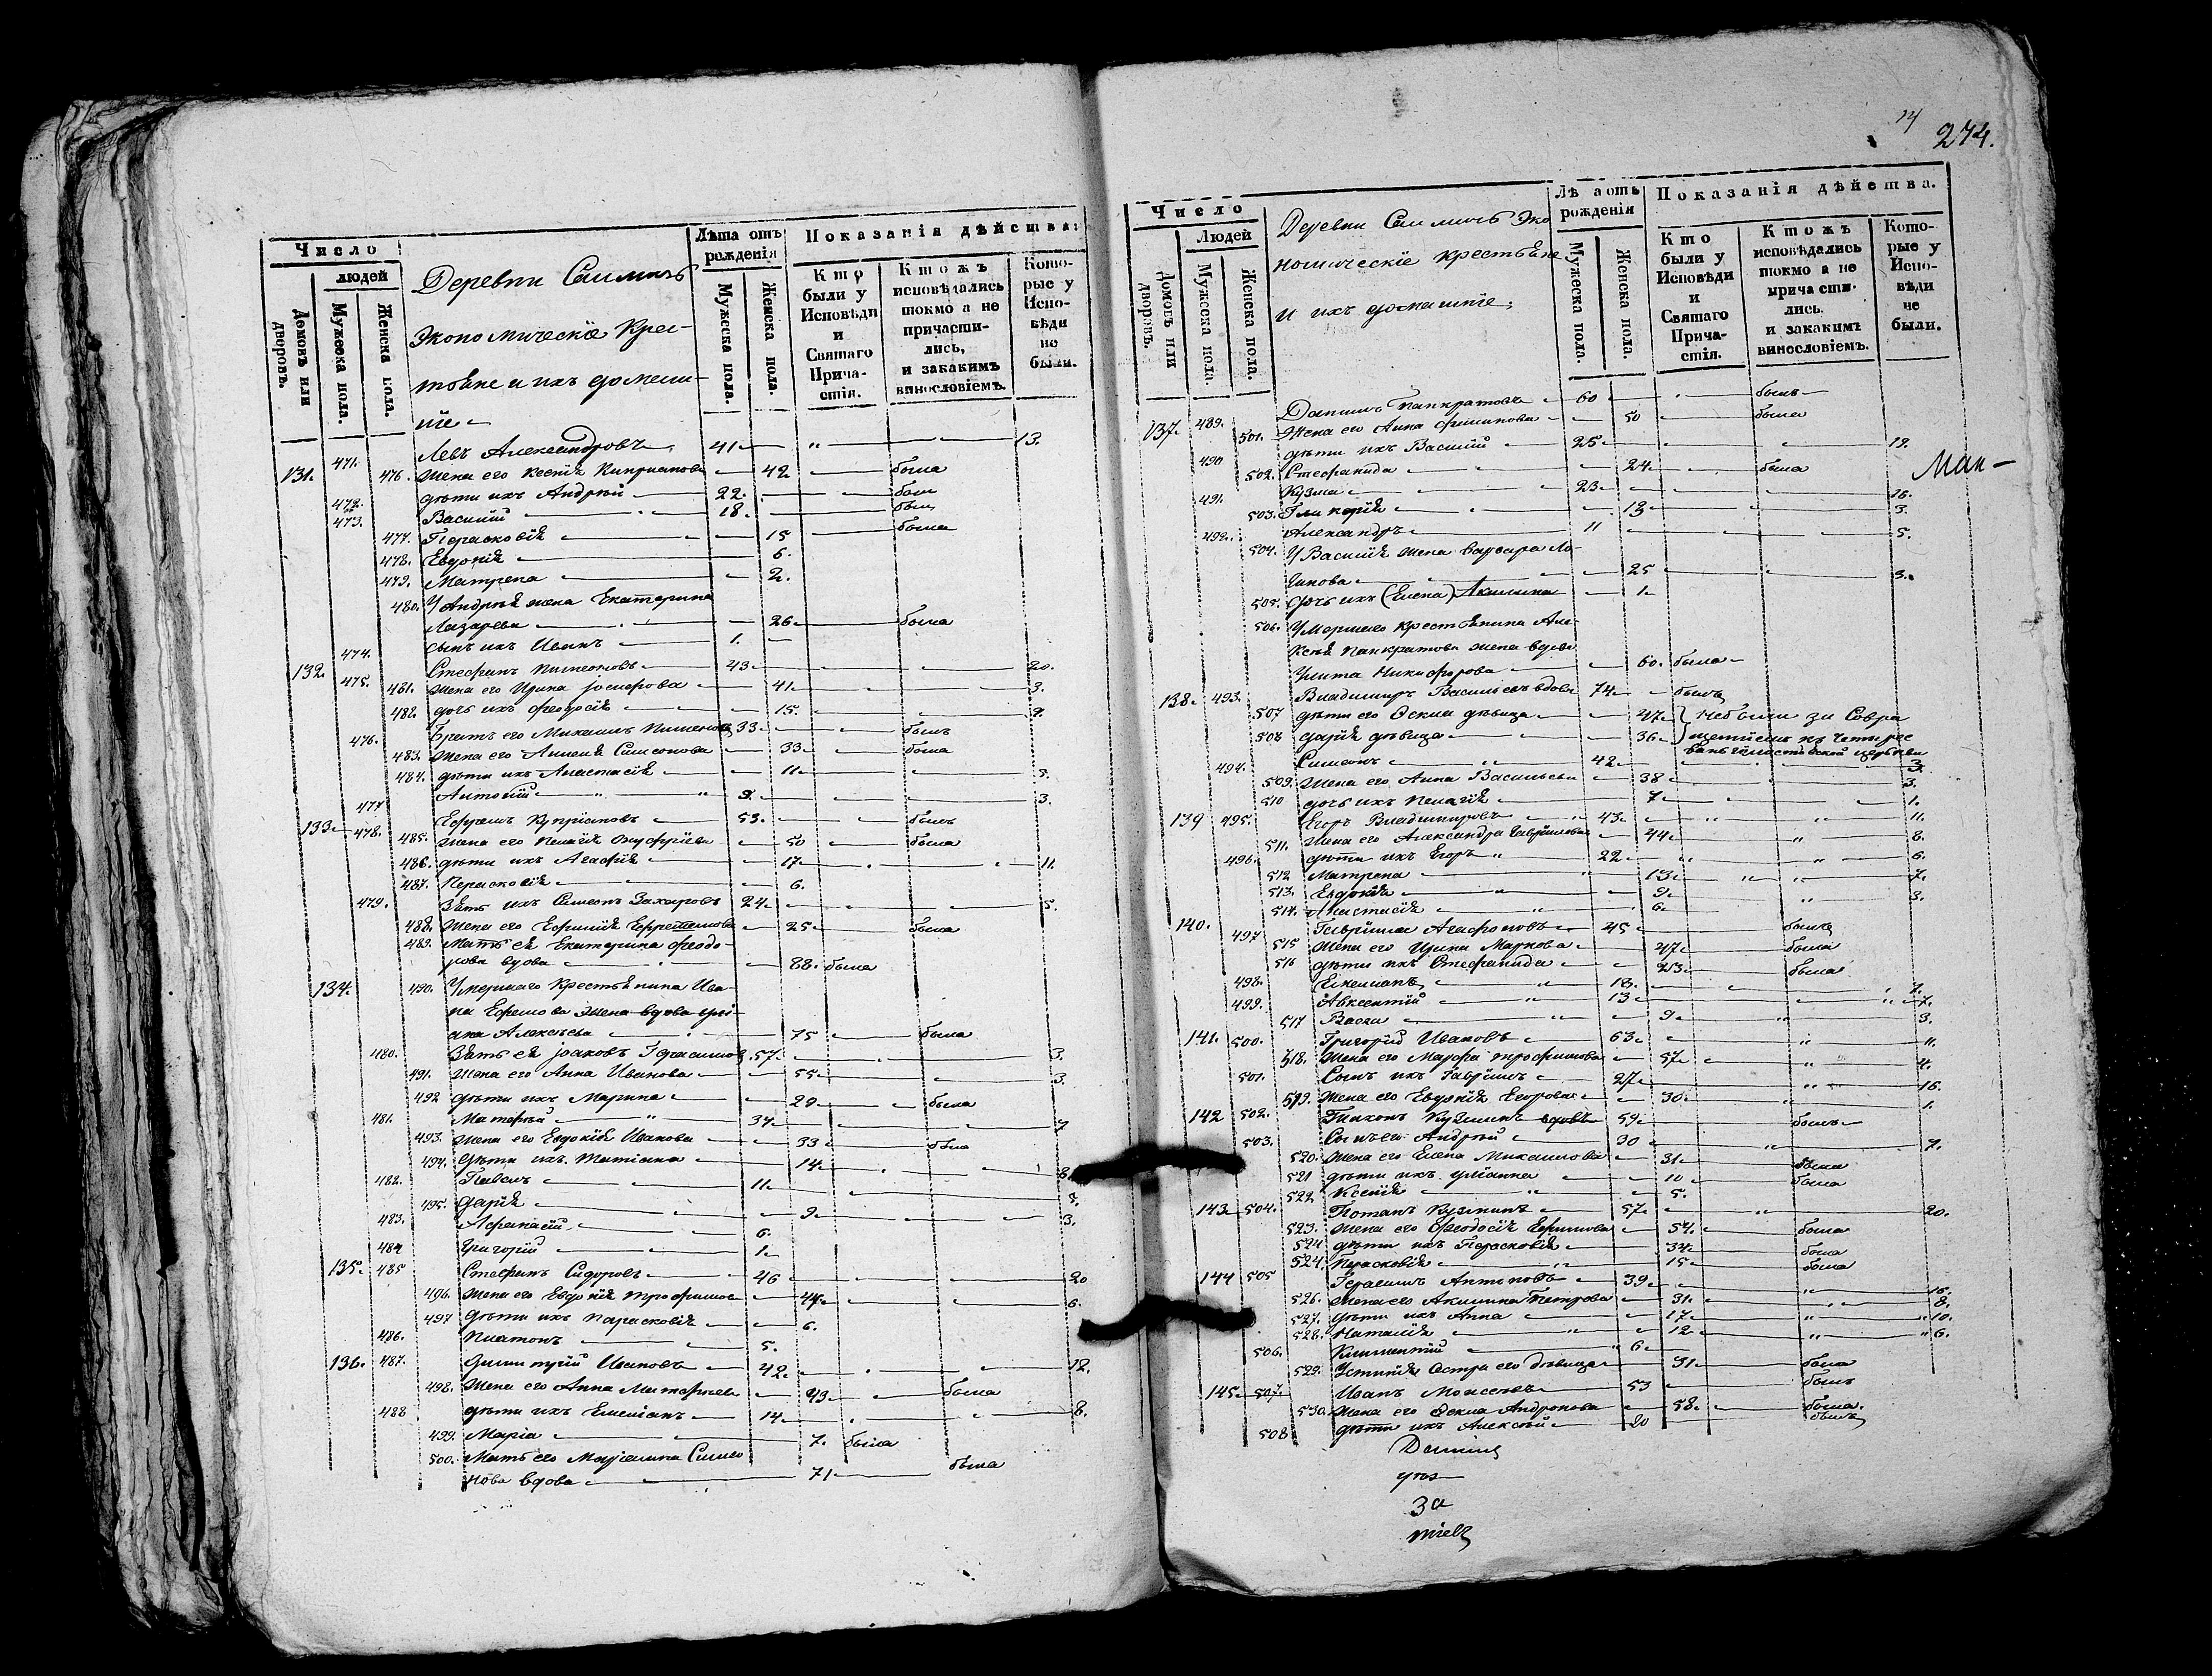 Число
людей
Домовъ или дворовъ.
Мужеска пола.
Женска пола.
Деревни
Экономическіе Крес-
тьяне и ихъ домаш-
ніе
Лѣта отъ рожденія
Мужеска пола.
Женска пола.
Показанія дѣйства:
Кто были у Исповѣди и Святаго Прича-стія.
Ктожъ исповѣдались токмо а не причасти-лись, и закакимъ винословіемъ.
Кото-рые у Испо-вѣди не были.
131. 471. Левъ Александровъ 41 13.
476. Жена его Ксенія Кипріанова 42 была
472. дѣти ихъ Андрей 22.
473. Василій 18.
477. Параскевія 15 была
478. Евдокія 6.
479. Матрена 2.
480. У Андрея жена Екатерина
Лазарева 26 была
474. сынъ ихъ Иванъ 1.
132. 475. Стефанъ Пименовъ 43 20.
481. Жена его Ирина Іосифова 41 3.
482. дочь ихъ Феодосія 15. 9.
476. Братъ его Михаилъ Пименовъ 33 былъ
483. Жена его Симеонова 33 была
484. дѣти ихъ Анастасія 11 3.
477 Антоній 9. 3.
133. 478. Ефремъ Кипріановъ 53. былъ
485. Жена его Пелагія Онуфріева 50 была
486. дѣти ихъ Агафія 17 11.
487. Параскевія 6.
479. Зять ихъ Симеонъ Захаровъ 24 5.
488. Жена его Ефимія Ефремова 25 была
489. Мать ея Екатерина Феодо-
рова вдова 88. была
134. 490. Умершаго Крестьянина Ива-
на Ефремова жена вдова Улі-
яна Алексѣева 75 была
480. Зять ея Іаковъ Герасимовъ 57 3.
491. Жена его Анна Иванова 55 3.
492 дѣти ихъ Марина 29 была
481. Матфей 34 7
493. Жена его Евдокія Иванова 33 была
494. Дѣти ихъ Татіана 14 8.
482. Павелъ 11 3.
495. Дарія 9 3.
483. Афанасій 6.
484 Григорій 1
135. 485 Стефанъ Сидоровъ 46 20
496. Жена его Евдокія Трофимова 44 6.
497 Дѣти ихъ Параскевія 6.
486. Платонъ 5.
136. 487. Димитрій Ивановъ 42 12.
498. Жена его Анна Матфеева 43 была
488 дѣти ихъ Емеліанъ 14 8.
499. Марія 7. была
500. Мать его Маріамна Симео
нова вдова 71 была
274.
Число
Людей
Домовъ или дворовъ.
Мужеска пола.
Женска пола.
Деревни Эко
номическіе крестьяне
и ихъ домашніе,
Лѣ а отъ рожденія
Мужеска пола.
Женска пола.
Показанія дѣйства.
Кто были у Исповѣди и Святаго Прича-стія.
Ктожъ исповѣдались токмо а не прича сти-лись. и закакимъ винословіемъ.
Кото-рые у Испо-вѣди не были.
137. 489. Даніилъ Панкратовъ 60 былъ
501. Жена его Анна Филипова 50 была
490 дѣти ихъ Василій 25 18.
502. Стефанида 24 была
491. Кузма 23 16.
503. Гликерія 13 3.
492. Александръ 11 5.
504. У Василія жена Варвара Ло-
гинова 25 3.
505. дочь ихъ (Елена) Акилина 1
506. Умершаго Крестьянина Але-
ксѣя Панкратова жена вдова
Улита Никифорова 60. была
138. 493. Владимиръ Васильевъ вдовъ 74 былъ
507 дѣти его Фекла дѣвица 47 } Небыли за Совра
508 Дарія дѣвица 36 }
494. Симеонъ 42 3.
509. Жена его Анна Васильева 38 3.
510 дочь ихъ Пелагія 7 1.
139 495. Егоръ Владимировъ 43 11.
511. Жена его Александра Гавріилова 44 8.
496. дѣти ихъ Егоръ 22 6.
512 Матрена 13 7.
513. Евдокія 9 3.
514. Анастасія 6
140. 497 Гавріилъ Агафоновъ 45 былъ
515 Жена его Ирина Маркова 47 была
516 дѣти ихъ Стефанида 23 была
498. Емеліанъ 18. 7.
499. Авксентій 13 7.
517 Васса 9 3.
141. 500. Григорій Ивановъ 63 11.
518. Жена его Марфа Трофимова 57 4.
501. Сынъ ихъ Гавріилъ 27 16.
519. Жена его Евдокія Егорова 30 1.
142 502. Тихонъ Кузминъ вдовъ 59 былъ
503. Сынъ его Андрей 30 7.
520. Жена его Елена Михаилова 31 была
521 дѣти ихъ Уліанна 10 была
522 Ксенія 5.
143 504. Потапъ Кузминъ 57 20.
523. Жена его Феодосія Ефимова 54. была
524 дѣти ихъ Параскевія 34 была
524. Параскевія 15 была
144 505 Герасимъ Антоновъ 39 16.
526. Жена его Акилина Петрова 31. 8.
527. дѣти ихъ Анна 17 10.
528. Наталія 12 6.
506. Климентій 6
529. Устинія Сестра его дѣвица 31 была
145 507. Иванъ Моисеевъ 53 былъ
530. Жена его Фекла Андронова 58 была.
508 дѣти ихъ Алексѣй 20 былъ